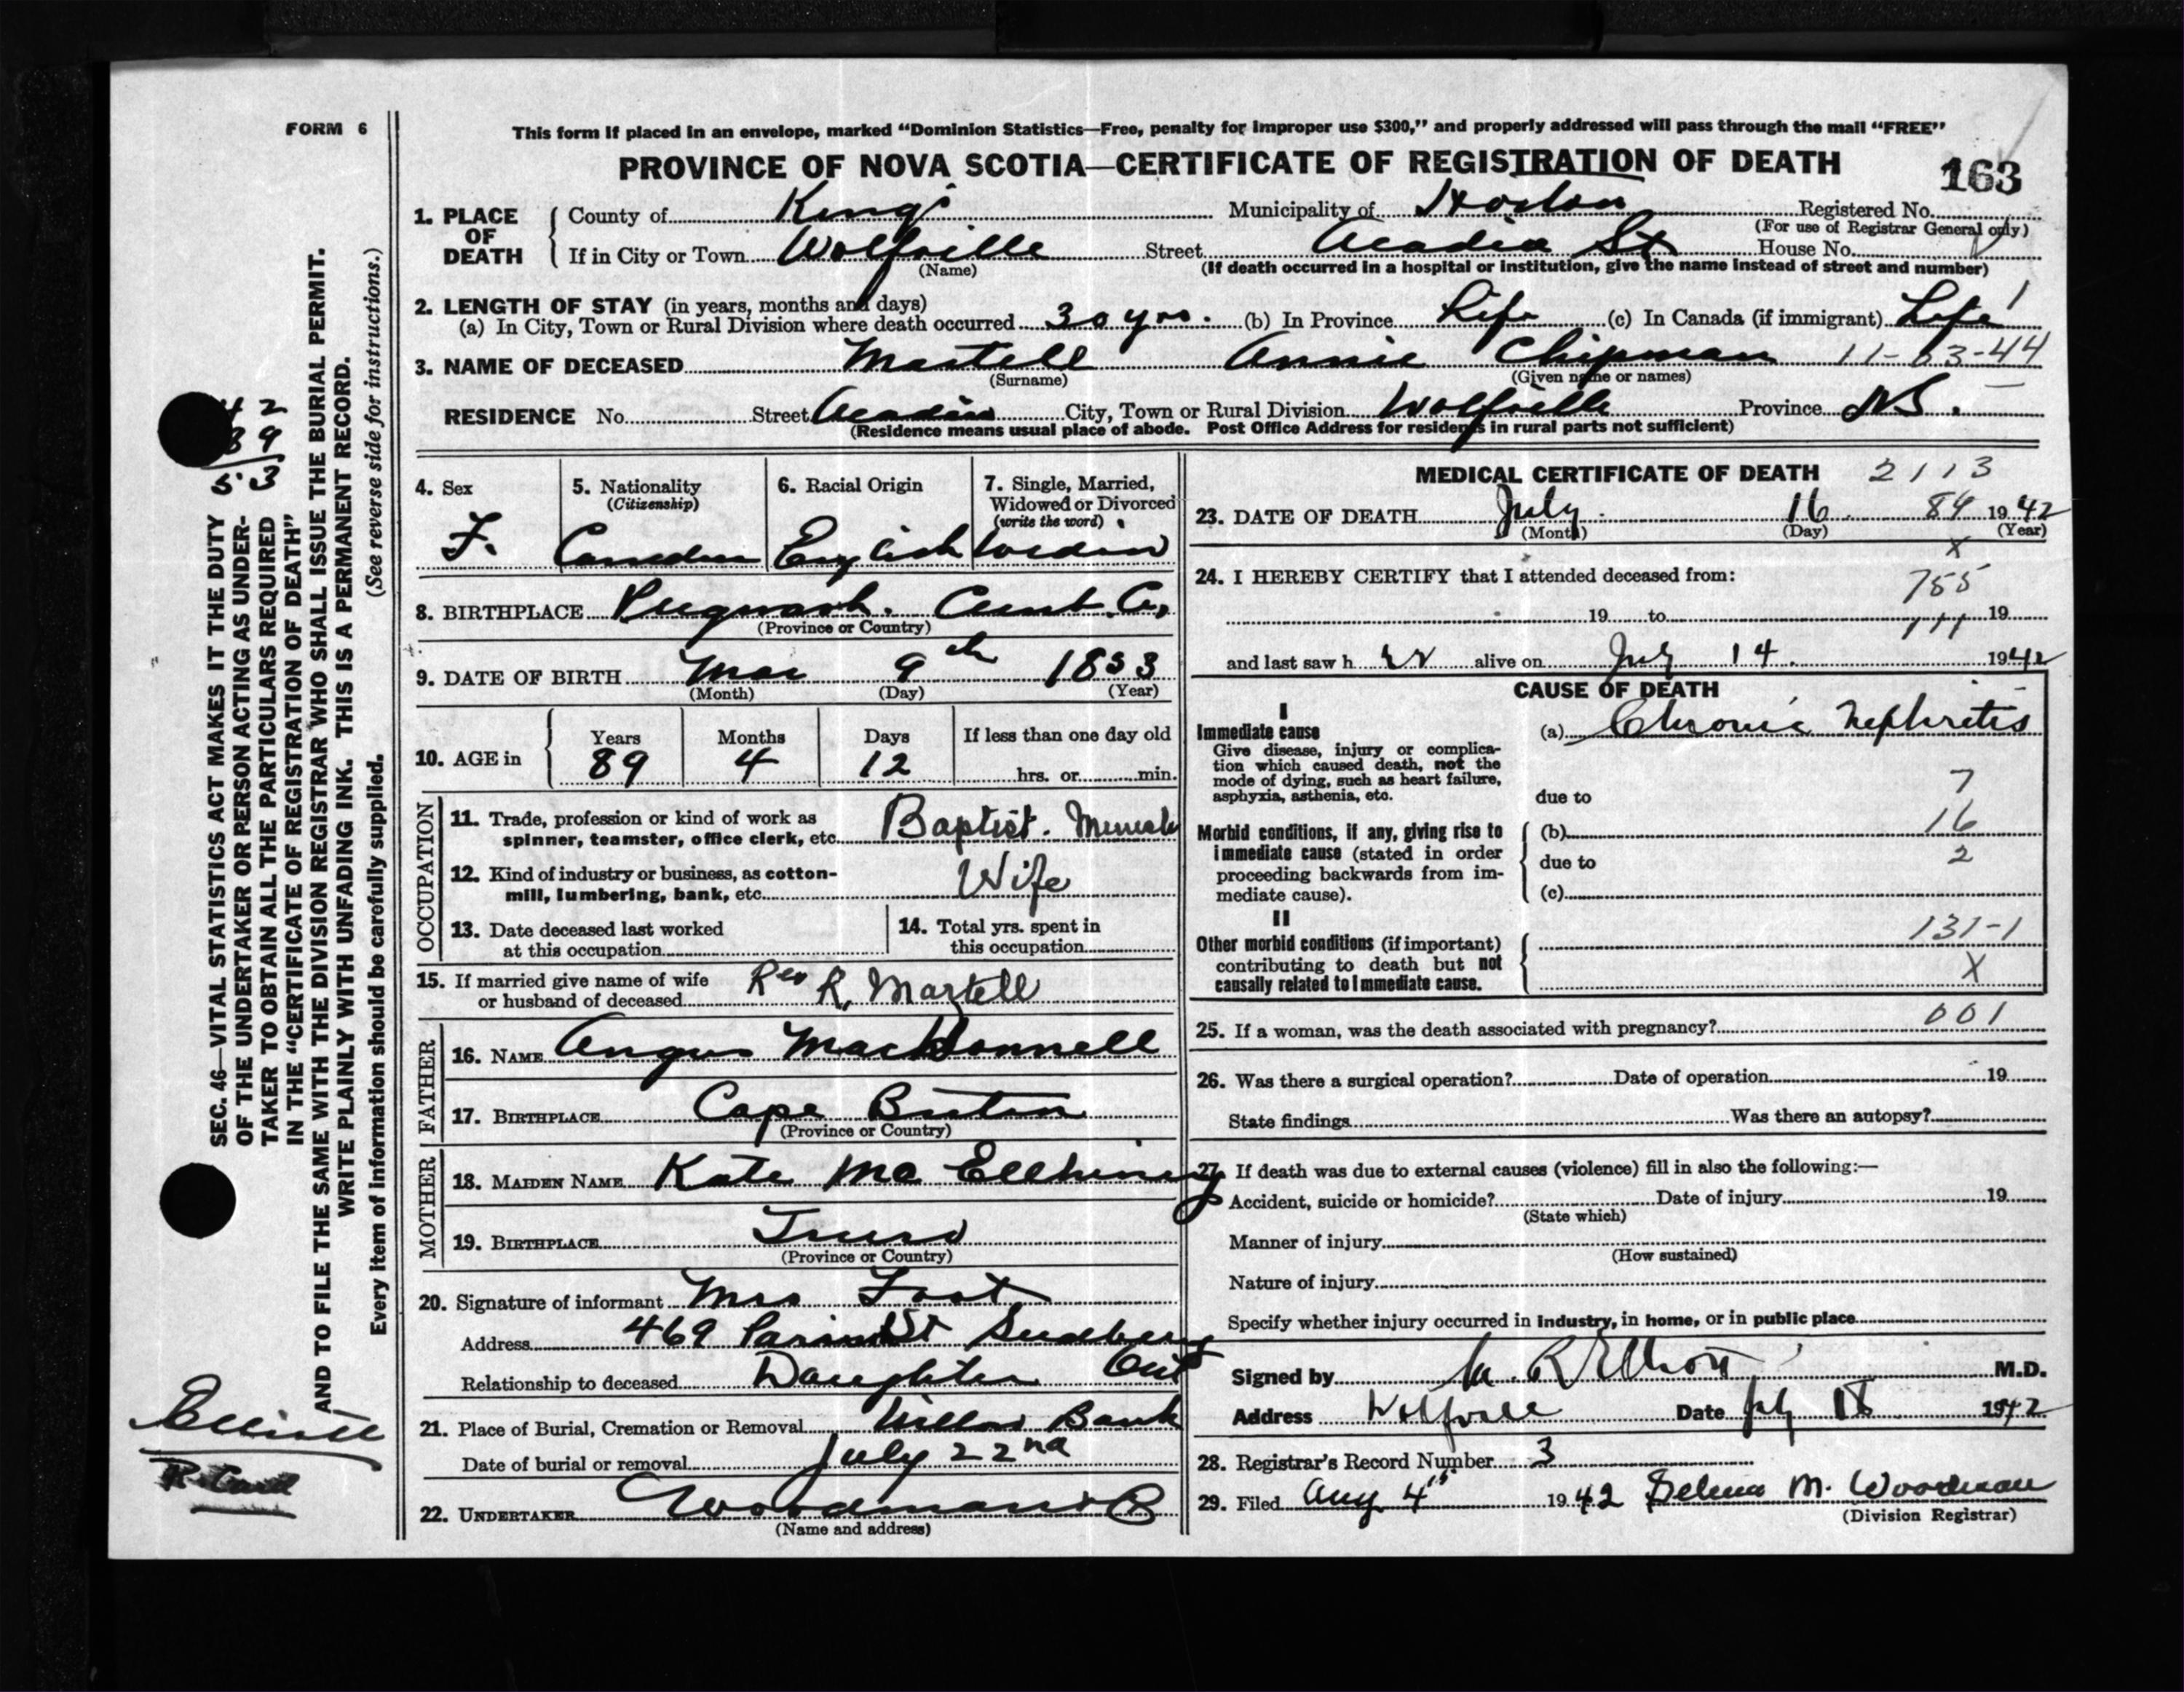 FORM 6
This form if placed in an envelope, marked “Dominion Statistics—Free, penalty for improper use $300,” and properly addressed will pass through the mail “FREE”
PROVINCE OF NOVA SCOTIA—CERTIFICATE OF REGISTRATION OF DEATH 163
1. PLACE OF DEATH
County of Kings Municipality of Horton Registered No.
(For use of Registrar General only)
If in City or Town Wolfville Street Acadia St House No.
(Name) (If death occurred in a hospital or institution, give the name instead of street and number)
2. LENGTH OF STAY (in years, months and days)
(a) In City, Town or Rural Division where death occurred 30 yrs. (b) In Province Life (c) In Canada (if immigrant) Life 1
3. NAME OF DECEASED Martell Annie Chipman 11-03-44
(Surname) (Given name or names)
RESIDENCE No. Street Acadia City, Town or Rural Division Wolfville Province NS.
(Residence means usual place of abode. Post Office Address for residents in rural parts not sufficient)
4. Sex
F.
5. Nationality
(Citizenship)
6. Racial Origin
English
7. Single, Married,
Widowed or Divorced
(write the word)
8. BIRTHPLACE Pugwash. Cumb. Co,
(Province or Country)
9. DATE OF BIRTH Mar 9th 1853
(Month) (Day) (Year)
10. AGE in
Years Months Days If less than one day old
89 4 12 hrs. or min.
OCCUPATION
11. Trade, profession or kind of work as
spinner, teamster, office clerk, etc. Baptist.
12. Kind of industry or business, as cotton-
mill, lumbering, bank, etc. Wife
13. Date deceased last worked
at this occupation
14. Total yrs. spent in
this occupation
15. If married give name of wife
or husband of deceased Rev R. Martell
FATHER
16. NAME Angus MacDonnell
17. BIRTHPLACE Cape Breton
(Province or Country)
MOTHER
18. MAIDEN NAME Kate Mc Ellhiney
19. BIRTHPLACE Truro
(Province or Country)
20. Signature of informant Mrs
Address 469 St Sudbury
Relationship to deceased Daughter Ont
21. Place of Burial, Cremation or Removal Willow Bank
Date of burial or removal July 22nd
22. UNDERTAKER Woodman
(Name and address)
MEDICAL CERTIFICATE OF DEATH 2113
23. DATE OF DEATH July 16 89 1942
(Month) (Day) (Year)
X
24. I HEREBY CERTIFY that I attended deceased from:
755
19 to 19
111
and last saw h er alive on July 14. 1942
CAUSE OF DEATH
I
Immediate cause
Give disease, injury or complica-
tion which caused death, not the
mode of dying, such as heart failure,
asphyxia, asthenia, etc.
(a) Chronic Nephritis
7
due to
Morbid conditions, if any, giving rise to
immediate cause (stated in order
proceeding backwards from im-
mediate cause).
(b) 16
due to 2
(c)
II
Other morbid conditions (if important)
contributing to death but not
causally related to immediate cause.
131-1
X
25. If a woman, was the death associated with pregnancy? 001
26. Was there a surgical operation? Date of operation 19
State findings Was there an autopsy?
27. If death was due to external causes (violence) fill in also the following:—
Accident, suicide or homicide? Date of injury 19
(State which)
Manner of injury
(How sustained)
Nature of injury
Specify whether injury occurred in industry, in home, or in public place
Signed by M. R Elliott M.D.
Address Wolfville Date July 18 1942
28. Registrar's Record Number 3
29. Filed Aug 4th 1942 Selena M. Woodman
(Division Registrar)
SEC. 46—VITAL STATISTICS ACT MAKES IT THE DUTY
OF THE UNDERTAKER OR PERSON ACTING AS UNDER-
TAKER TO OBTAIN ALL THE PARTICULARS REQUIRED
IN THE “CERTIFICATE OF REGISTRATION OF DEATH”
AND TO FILE THE SAME WITH THE DIVISION REGISTRAR WHO SHALL ISSUE THE BURIAL PERMIT.
WRITE PLAINLY WITH UNFADING INK. THIS IS A PERMANENT RECORD.
Every item of information should be carefully supplied. (See reverse side for instructions.)
42
89
53
Elliott